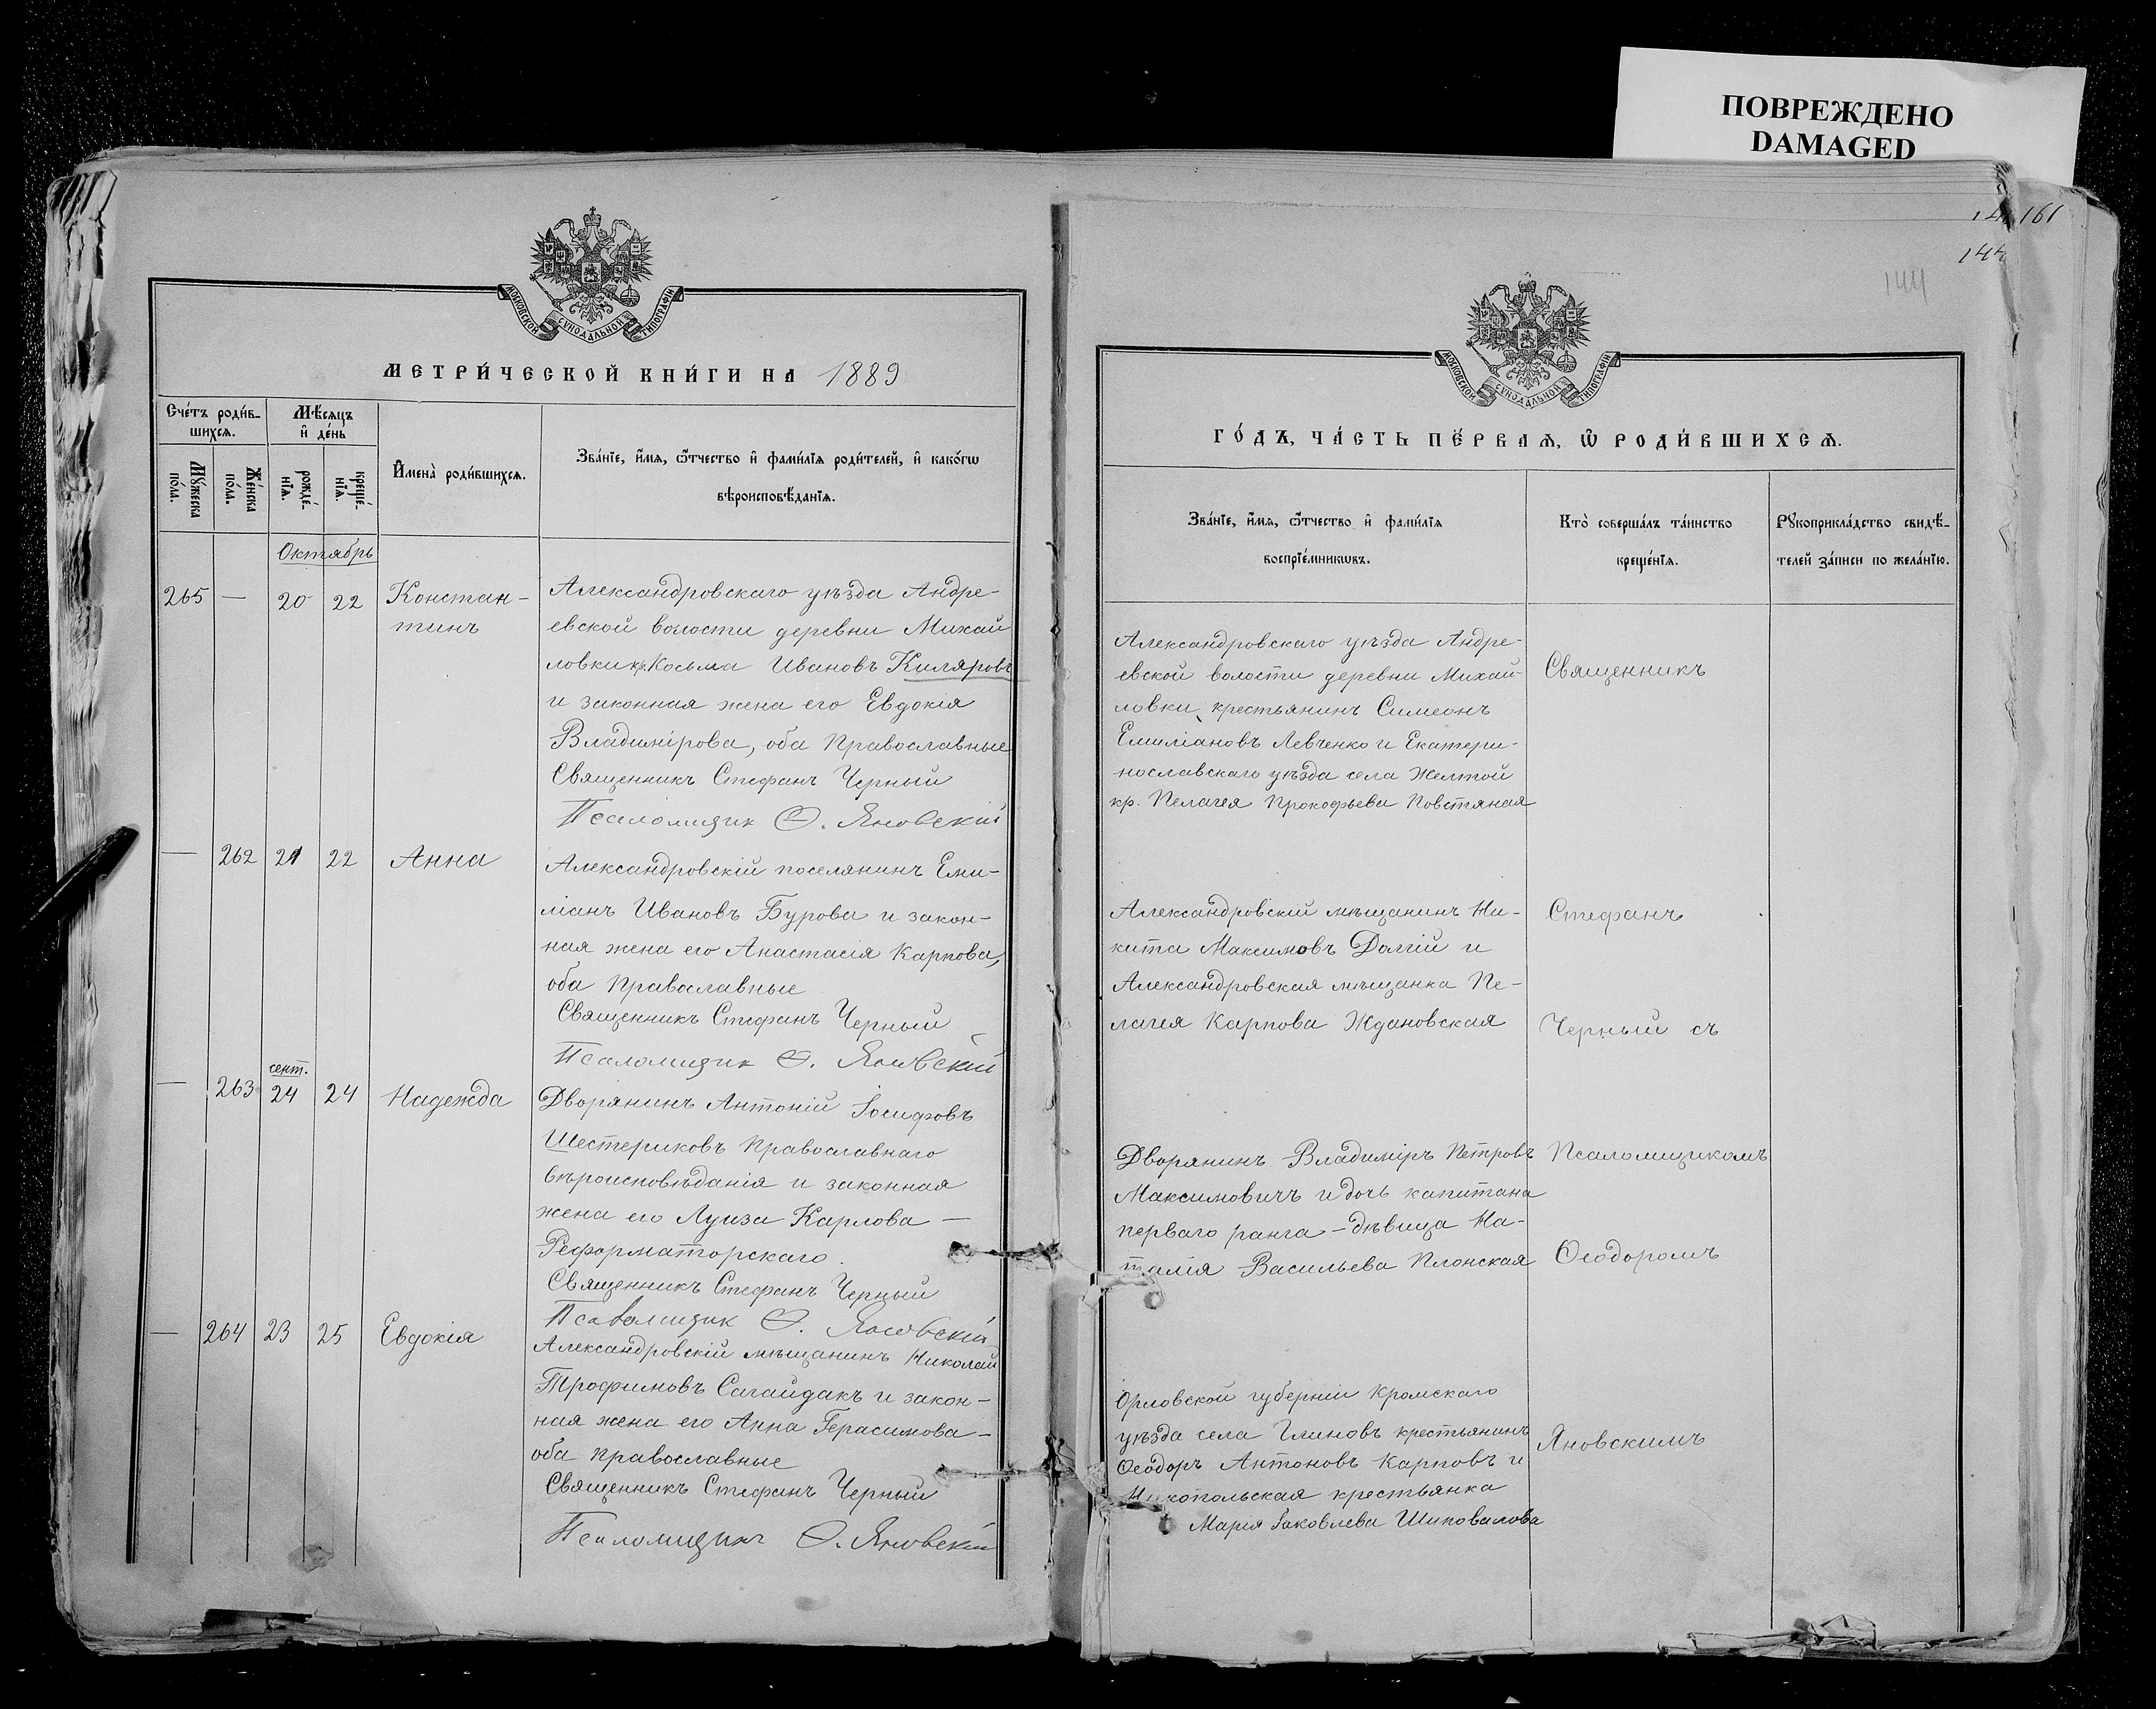 ПОВРЕЖДЕНО
DAMAGED
161
144
144
МОСКОВСКОЙ СУНОДАЛЬНОЙ ТИПОГРАФІИ
МЕТРИ́ЧЕСКОЙ КНИ́ГИ НА 1889
Сче́тъ роди́в-
шихся.
Мѣ́сяцъ
и҆ де́нь
Мꙋ́жеска
по́ла.
Же́нска
по́ла.
рожде́-
нїя.
креще́-
нїя.
И҆мена̀ роди́вшихся.
Зва́нїе, и҆́мя, ѻ҆́тчество и҆ фами́лїя роди́телей, и҆ како́гѡ
вѣроисповѣ́данїя.
Октябрь
265 — 20 22 Констан-
тинъ
Александровскаго уѣзда Андре-
евской волости деревни Михай
ловки кр. Косьма Ивановъ Киляровъ
и законная жена его Евдокія
Владимірова, оба православные
Священникъ Стефанъ Черный
Псаломщик Ѳ. Яновскій
— 262 21 22 Анна
Александровскій поселянинъ Еми-
ліанъ Ивановъ Бурова и закон-
ная жена его Анастасія Карпова,
оба православные
Священникъ Стефанъ Черный
Псаломщик Ѳ. Яновскій
сент.
— 263 24 24 Надежда
Дворянинъ Антоній Іосифовъ
Шестериковъ православнаго
вѣроисповѣданія и законная
жена его Луиза Карлова —
Реформаторскаго.
Священникъ Стефанъ Черный
Псаломщик Ѳ. Яновскій
— 264 23 25 Евдокія
Александровскій мѣщанинъ Николай
Трофимовъ Сагайдакъ и закон-
ная жена его Анна Герасимова —
оба православные
Священникъ Стефанъ Черный
Псаломщикъ Ѳ. Яновскій
МОСКОВСКОЙ СУНОДАЛЬНОЙ ТИПОГРАФІИ
ГО́ДЪ, ЧА́СТЬ ПЕ́РВАЯ, Ѡ҆ РОДИ́ВШИХСЯ.
Зва́нїе, и҆́мя, ѻ҆́тчество и҆ фами́лїя
воспрїе́мникѡвъ.
Кто̀ соверша́лъ та́инство
креще́нїя.
Рꙋкоприкла́дство свидѣ́-
телей за́писи по жела́нїю.
Александровскаго уѣзда Андре-
евской волости деревни Михай-
ловки, крестьянинъ Симеонъ
Емиліановъ Левченко и Екатери-
нославскаго уѣзда села Желтой
кр. Пелагея Прокофьева Повстяная
Александровскій мѣщанинъ Ни-
кита Максимовъ Долгій и
Александровская мѣщанка Пе-
лагея Карпова Ждановская
Дворянинъ Владиміръ Петровъ
Максимовичъ и дочь капитана
перваго ранга — дѣвица На-
талія Васильева Плонская
Орловской губерніи Кромскаго
уѣзда села Глиновъ крестьянинъ
Ѳеодоръ Антоновъ Карповъ и
Никопольская крестьянка
Марія Іаковлева Шиповалова
Священникъ
Стефанъ
Черный съ
Псаломщикомъ
Ѳеодоромъ
Яновскимъ